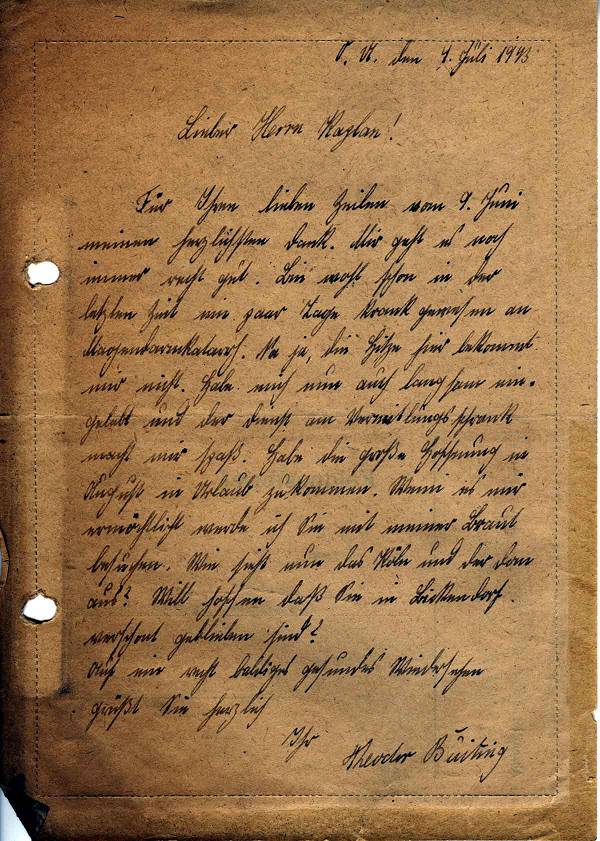 O. U. den 4. Juli 1943
Lieber Herr Kaplan!
Für Ihren lieben Zeilen vom 9. Juni
meinen herzlichsten Dank. Mir geht es noch
immer recht gut. Bin wohl schon in der
letzten Zeit ein paar Tage krank gewesen an
Magendarmkatarrh. Na ja, die Hitze hier bekommt
mir nicht. Habe mich nun auch langsam ein-
gelebt und der Dienst am Vermittlungsschrank
macht mir Spaß. Habe die große Hoffnung im
August in Urlaub zu kommen. Wenn es mir
ermöchlicht werde ich Sie mit meiner Braut
besuchen. Wie sieht nun das Köln und der Dom
aus? Will hoffen daß Sie in Bickendorf
verschont geblieben sind?
Auf ein recht baldiges gesundes Wiedersehen
grüßt Sie herzlich
Ihr
Theodor